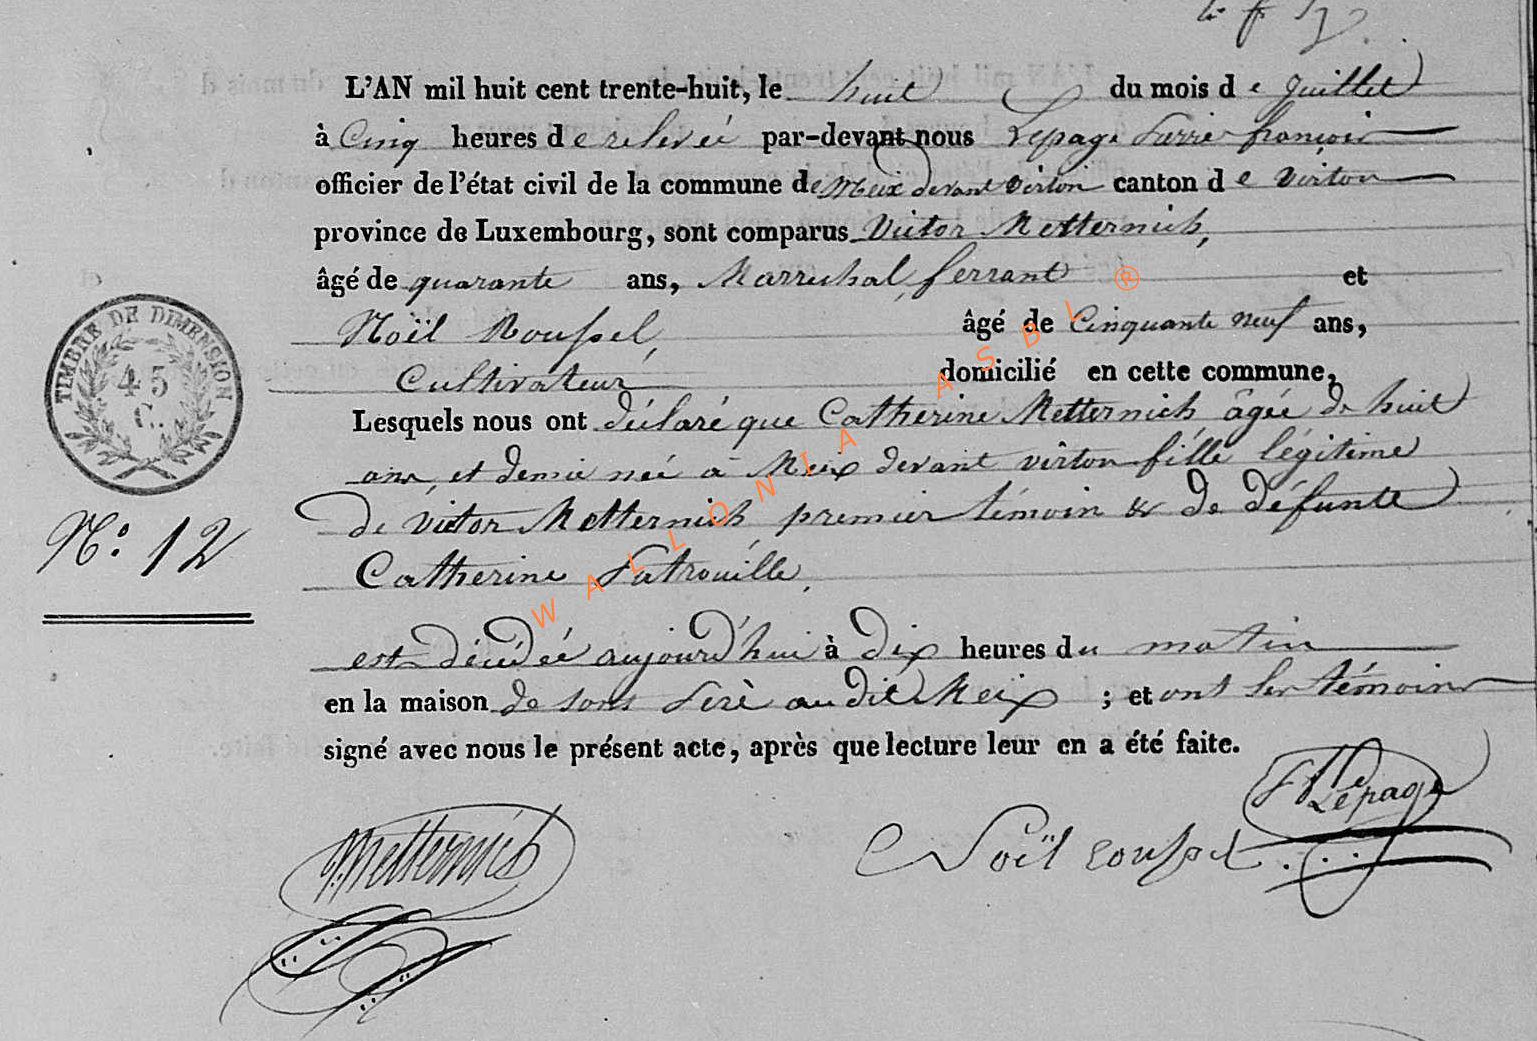 L'AN mil huit cent trente-huit, le huit du mois de Juillet
à Cinq heures de relevée par-devant nous Lepage Pierre françois
officier de l'état civil de la commune de Meix devant virton canton de Virton
province de Luxembourg, sont comparus Victor Metternich,
âgé de quarante ans, Marrechal ferrant et
Noël Roussel, âgé de Cinquante neuf ans,
Cultivateur domicilié en cette commune,
Lesquels nous ont déclaré que Catherine Metternich âgée de huit
ans, et demie née à Meix devant virton fille légitime
de Victor Metternich premier témoin & de défunte
Catherine Patrouille,
est décédée aujourd'hui à dix heures du matin
en la maison de sons Perè au dit Meix ; et ont les témoins
signé avec nous le présent acte, après que lecture leur en a été faite.
TIMBRE DE DIMENSION
45
C.
N.° 12
Lepage
Metternich
Noël roussel
WALLONIA ASBL ®